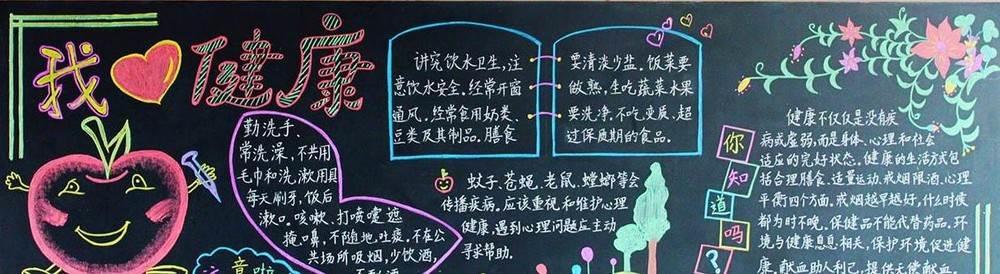 我健康
讲究饮水卫生,注
意饮水安全,经常开窗
通风。经常食用奶类、
豆类及其制品。膳食
要清淡少盐。饭菜要
做熟,生吃蔬菜水果
要洗净,不吃变质、超
过保质期的食品。
勤洗手、
常洗澡,不共用
毛巾和洗漱用具
每天刷牙,饭后
漱口。咳嗽、打喷嚏遮
掩口鼻,不随地吐痰,不在公
共场所吸烟,少饮酒,
不酗酒
蚊子、苍蝇、老鼠、蟑螂等会
传播疾病。应该重视和维护心理
健康,遇到心理问题应主动
寻求帮助。
你
知
道
吗
?
健康不仅仅是没有疾
病或虚弱,而是身体、心理和社会
适应的完好状态。健康的生活方式包
括合理膳食、适量运动、戒烟限酒、心理
平衡四个方面。戒烟越早越好,什么时候
都为时不晚。保健品不能代替药品。环
境与健康息息相关,保护环境促进健
康。献血助人利己,提供无偿献血
注意啦